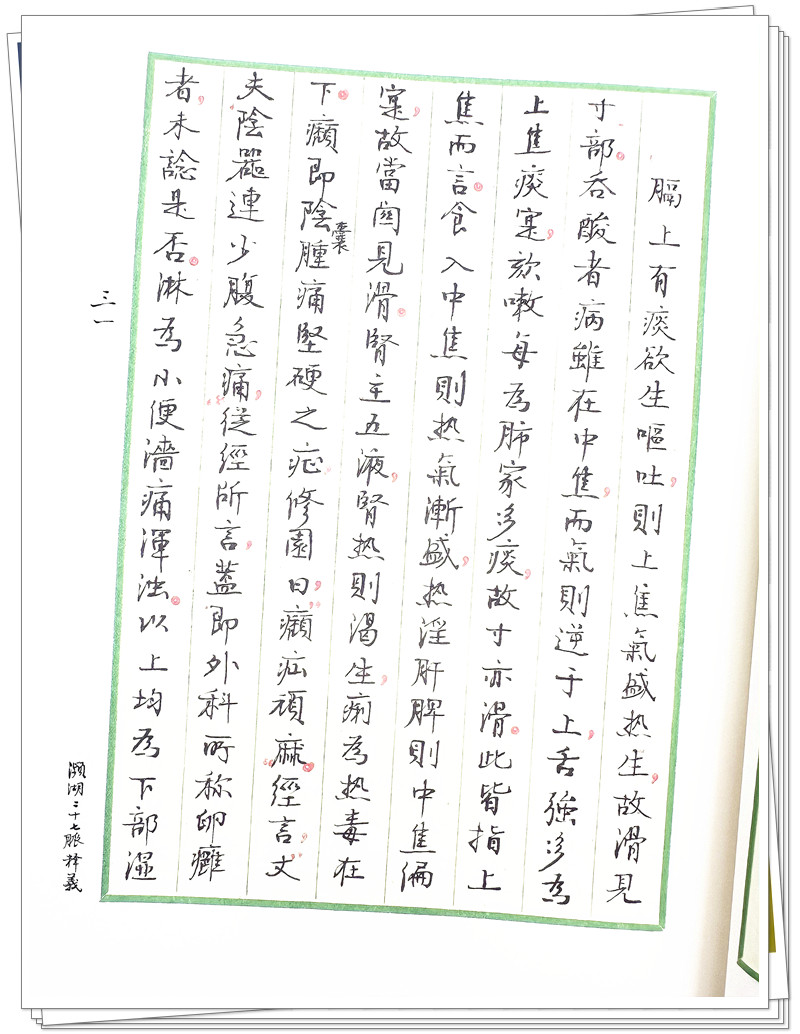 膈上有痰欲生嘔吐，則上焦氣盛热生，故滑見
寸部。吞酸者病雖在中焦，而氣則逆于上，舌強多為
上焦痰寔，欬嗽每為肺家多痰，故寸亦滑。此皆指上
焦而言。食入中焦則热氣漸盛，热淫肝脾則中焦偏
寔，故當関見滑。腎主五液，腎热則渴生，痢為热毒在
下。癩即陰囊腫痛堅硬之症修園曰，癩疝頑麻。經言丈
夫陰器連少腹急痛，從經所言，蓋即外科所称卵癰
者，未諗是否。淋為小便濇痛渾浊。以上均為下部濕
三一
瀕湖二十七脈释義